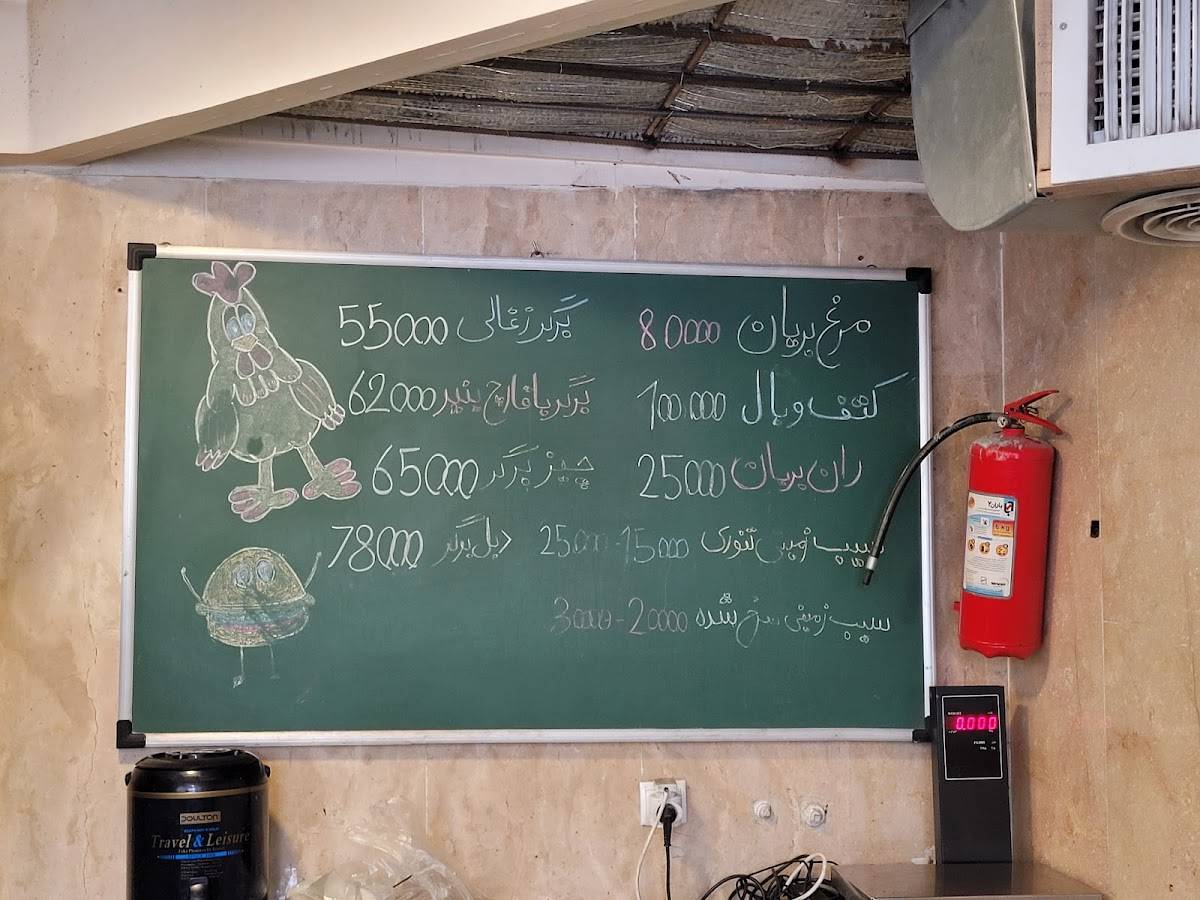 مرغ بریان 80000
کتف و بال 100.000
ران بریان 25000
سیب زمینی تنوری 15000-25000
سیب زمینی سرخ شده 20000-30000
برگر زغالی 55000
برگر با قارچ پنیر 62000
چیز برگر 65000
دبل برگر 78000
0.000
DOULTON
Travel & Leisure